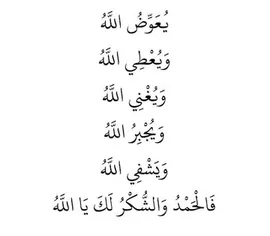 يُعَوِّضُ اللَّهُ
وَيُعْطِي اللَّهُ
وَيُغْنِي اللَّهُ
وَيُجْبِرُ اللَّهُ
وَيَشْفِي اللَّهُ
فَالْحَمْدُ وَالشُّكْرُ لَكَ يَا اللَّهُ